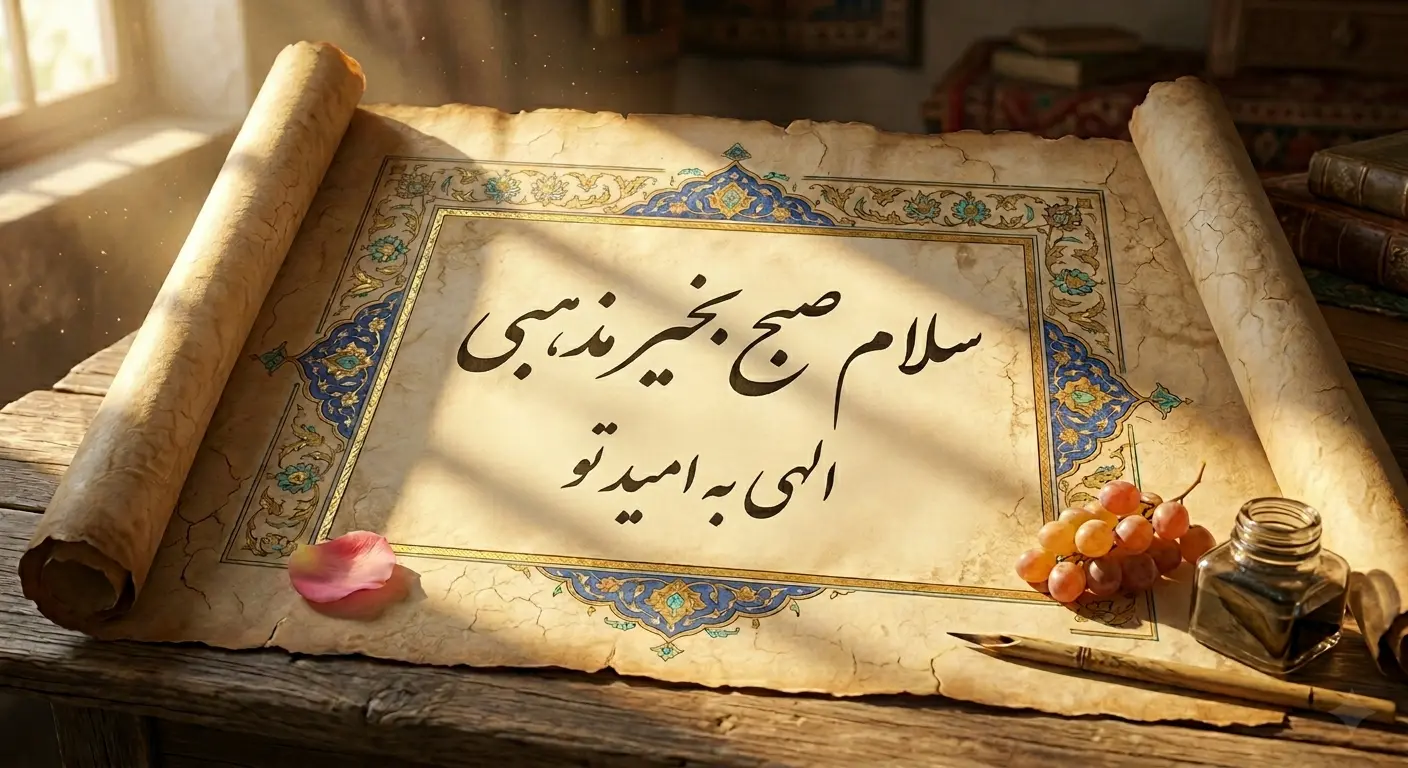 سلام صبح بخیر مذهبی
الهی به امید تو